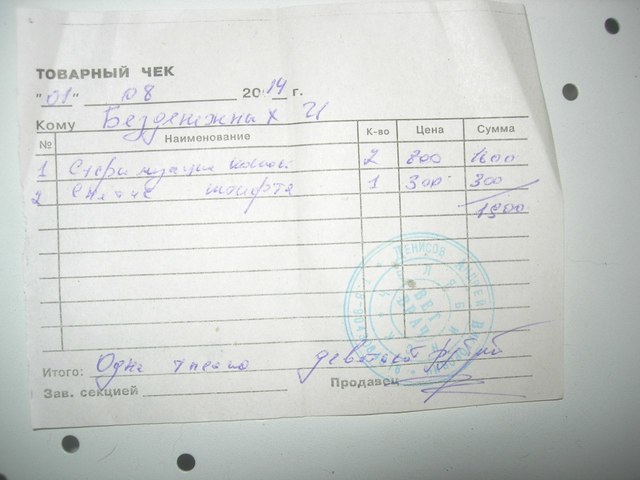 ТОВАРНЫЙ ЧЕК
"01" 08 2014 г.
Кому Безденежных И
№ Наименование К-во Цена Сумма
1 Стерилизация кошки 2 800 1600
2 Снятие 1 300 300
1900
ДЕНИСОВ
ВЕТ
ВРАЧ
Итого: Одна тысяча девятьсот руб
Зав. секцией Продавец